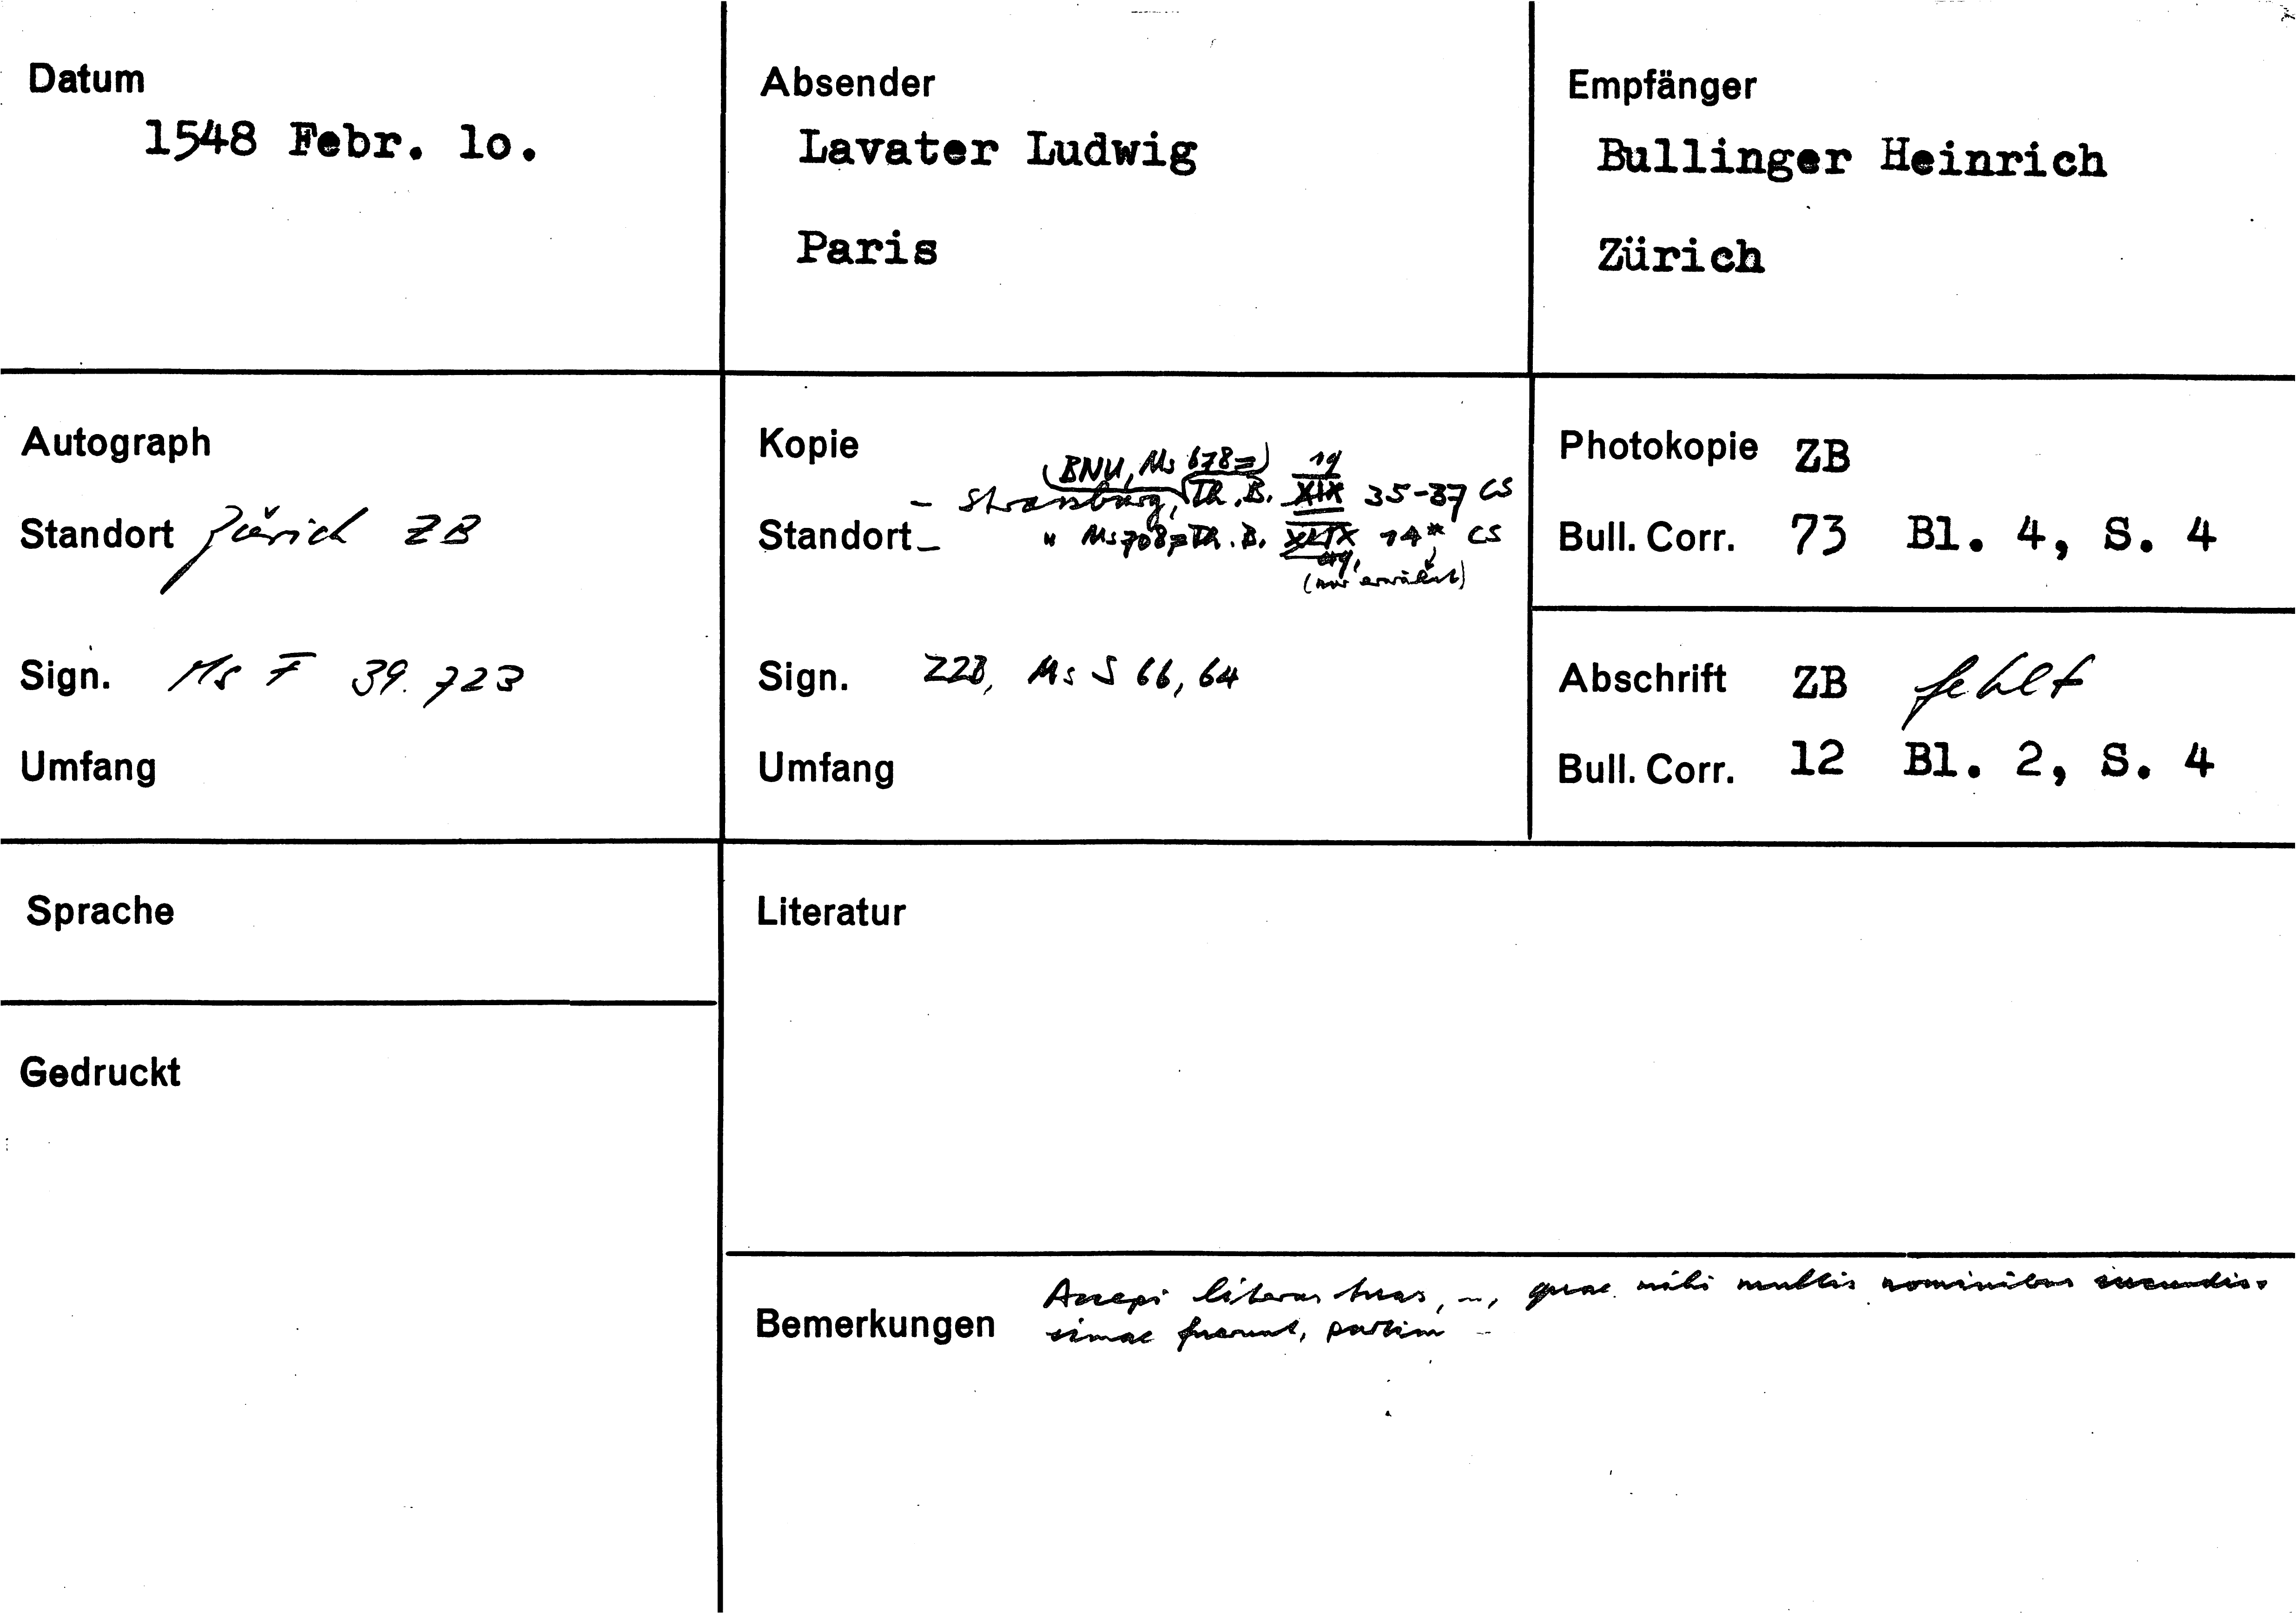 Datum
1548 Febr. lo.
Absender
Lavater Ludwig
Paris
Empfänger
Bullinger Heinrich
Zürich
Autograph
Standort Zürich ZB
Sign. Ms F 39. 723
Umfang
Kopie
(BNU, Ms 678=) 19
- Strassburg, Th. B. XIX 35-37 CS
Standort - " Ms 708= Th. B. XLIX 14* CS
(nur erwähnt)
Sign. ZZB, Ms S 66, 64
Umfang
Photokopie ZB
Bull. Corr. 73 Bl. 4, S. 4
Abschrift ZB fehlt
Bull. Corr. 12 Bl. 2, S. 4
Sprache
Gedruckt
Literatur
Bemerkungen
Accepi literas tuas, ..., quae mihi multis nominibus iucundis-
simae fuerunt, partim